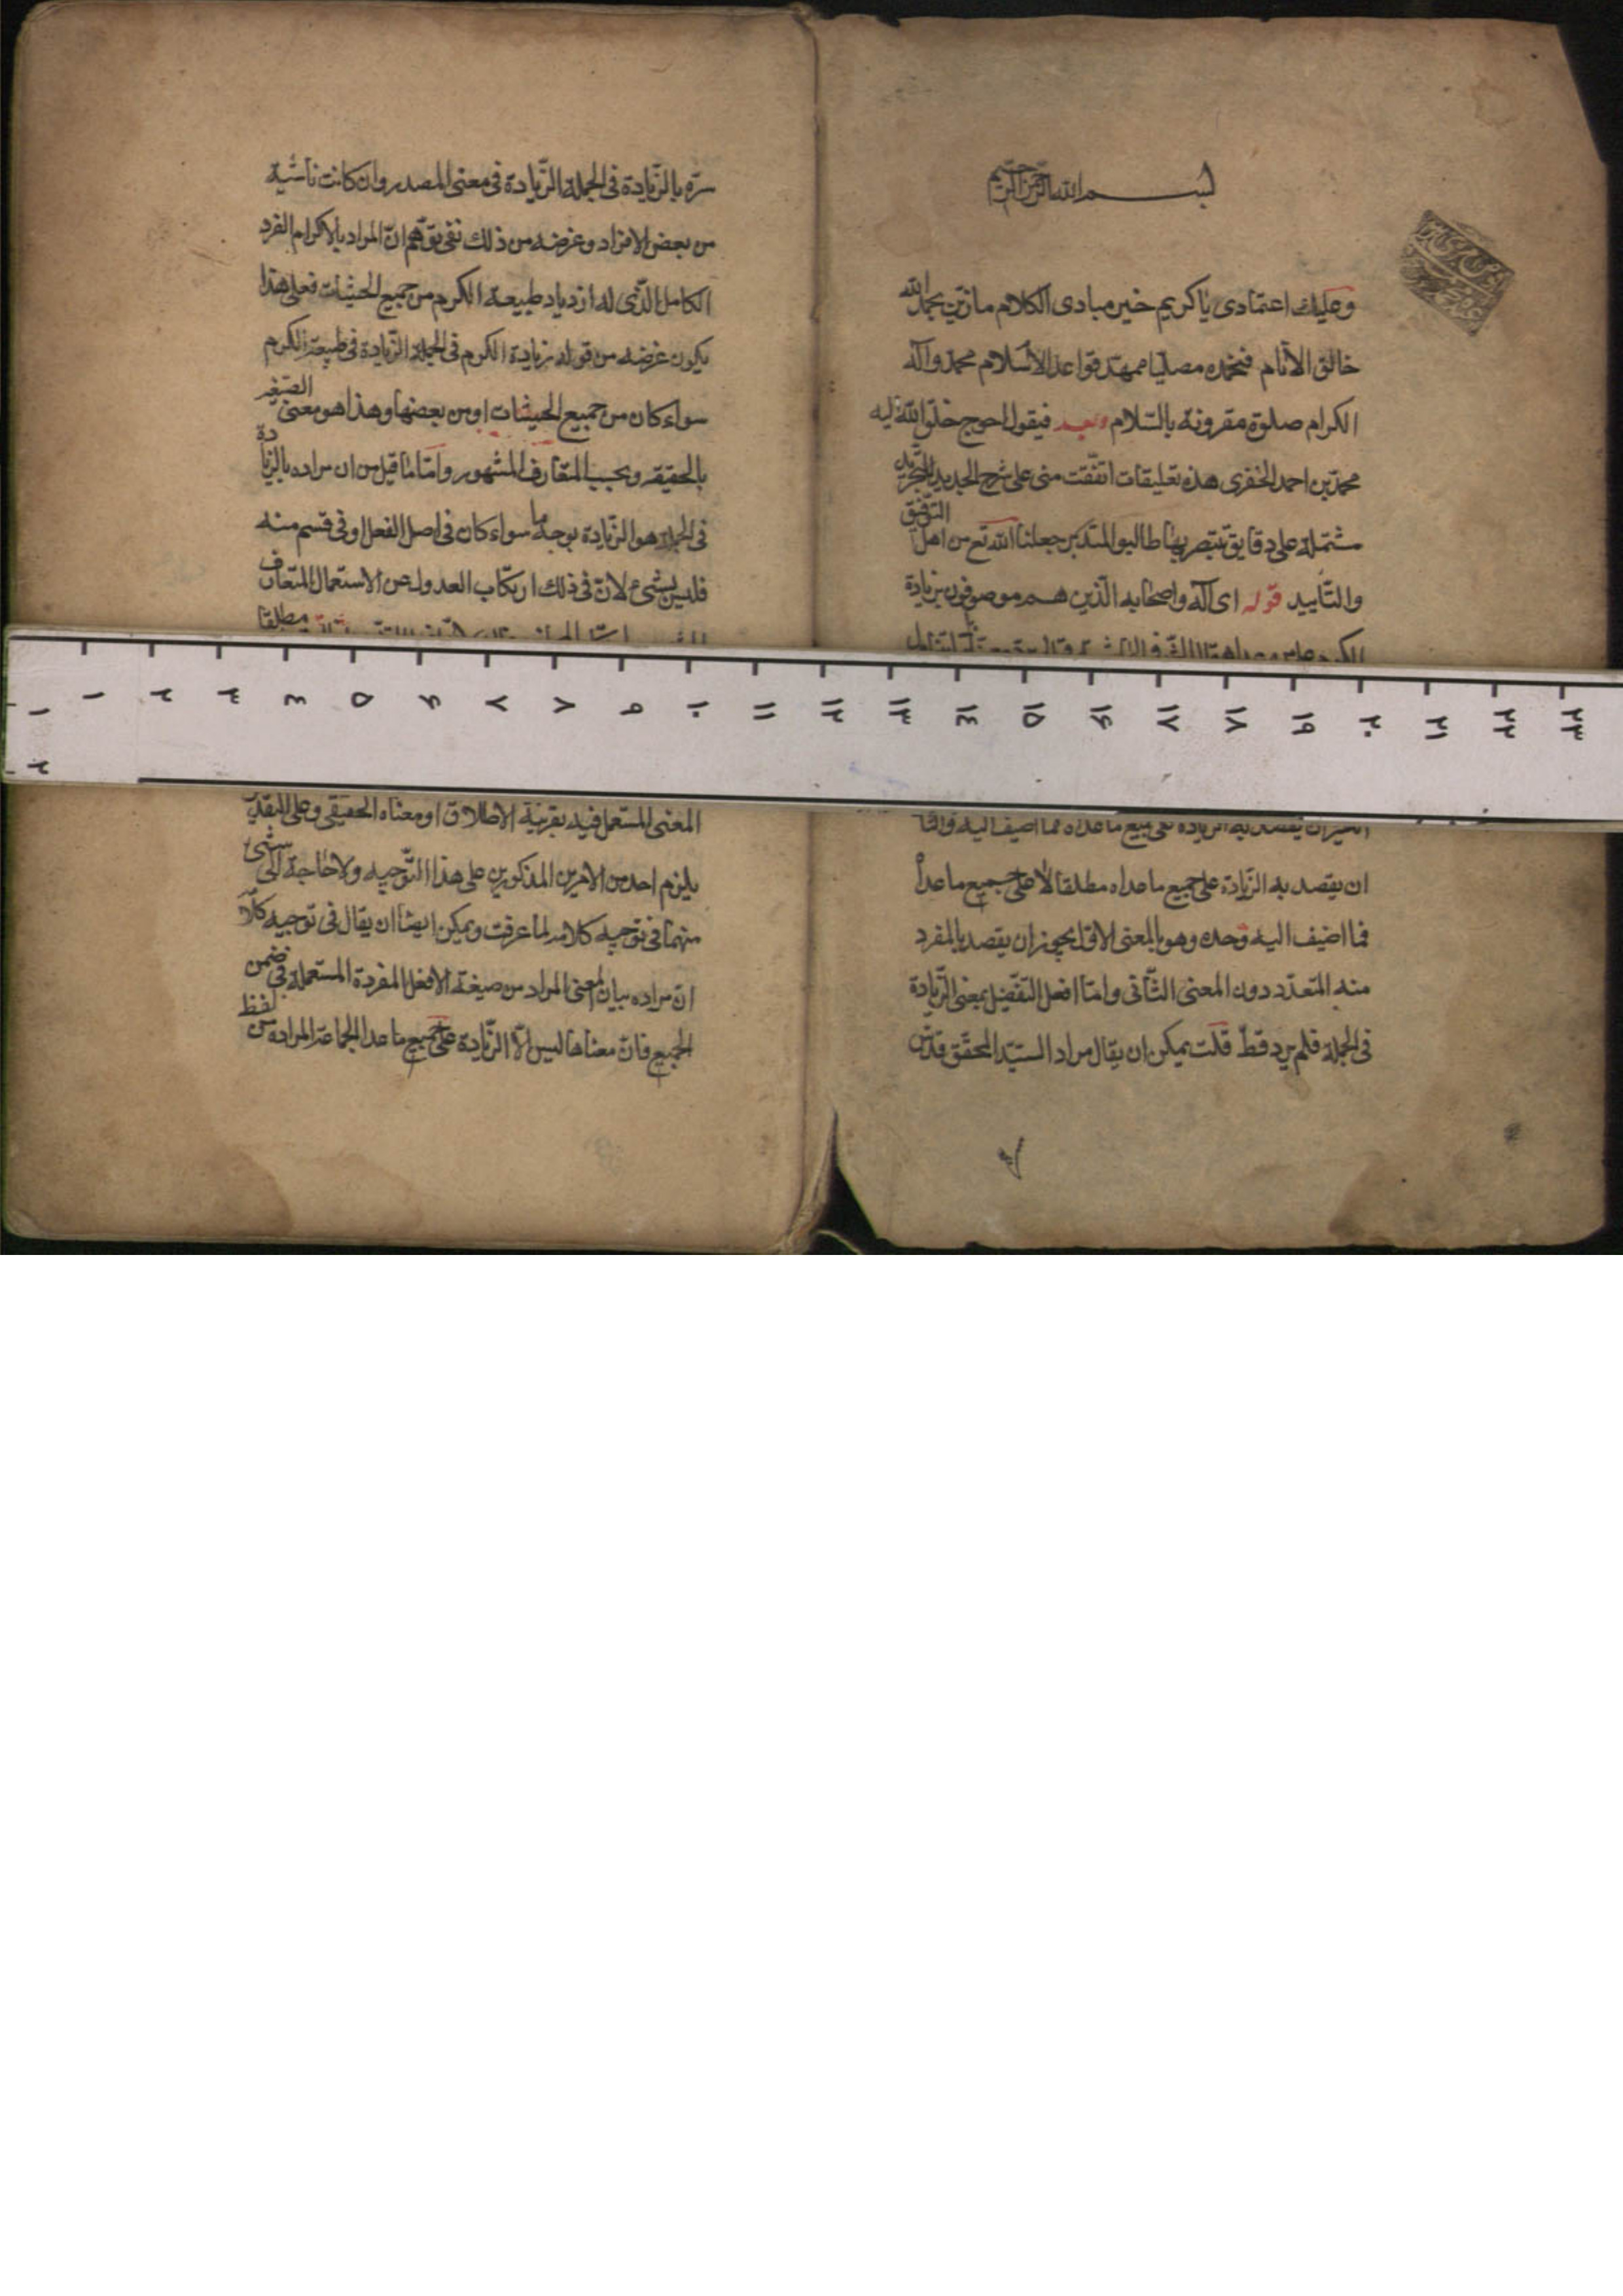 بسم الله الرحمن الرحيم
وعليك اعتمادى يا كريم خير مبادى الكلام ما زين بحمد الله
خالق الانام فنحمده مصليا ممهد قواعد الاسلام محمد وآله
الكرام صلوة مقرونة بالسلام وبعد فيقول احوج خلق الله اليه
محمد بن احمد الخفرى هذه تعليقات اتفقت منى على شرح الجديد للتجريد
مشتملة على دقايق يتبصر بها طالبو المتدبر جعلنا الله تع من اهل التوفيق
والتأييد قوله اى آله واصحابه الذين هم موصوفون بزيادة
الكرم على من عداهم
ان يقصد به الزيادة على جميع ما عداه مطلقا لا على جميع ما عداه
مما اضيف اليه وحده وهو بالمعنى الاول يجوز ان يقصد بالمفرد
منه المتعدد دون المعنى الثانى واما افعل التفضيل بمعنى الزيادة
فى الجملة فلم يرد قط قلت يمكن ان يقال مراد السيد المحقق قدس
سره بالزيادة فى الجملة الزيادة فى معنى المصدر وان كانت ناشية
من بعض الافراد وغرضه من ذلك نفى توهم ان المراد بالاكرام الفرد
الكامل الذى له ازدياد طبيعة الكرم من جميع الحيثيات فعلى هذا
يكون غرضه من قوله زيادة الكرم فى الجملة الزيادة فى طبيعة الكرم
سواء كان من جميع الحيثيات او من بعضها وهذا هو معنى الصغير
بالحقيقة وبحسب المتعارف المشهور واما ما قيل من ان مراده بالزيادة
فى الجملة هو الزيادة بوجه ما سواء كان فى اصل الفعل او فى قسم منه
فليس بشىء لان فى ذلك ارتكاب العدول عن الاستعمال المتعارف
مطلقا
المعنى المستعمل فيه بقرينة الاطلاق او معناه الحقيقى وعلى التقدير
يلزم احد من الامرين المذكورين على هذا التوجيه ولا حاجة الى شىء
منهما فى توجيه كلامه لما عرفت ويمكن ايضا ان يقال فى توجيه كلامه
ان مراده بيان المعنى المراد من صيغة الافعل المفردة المستعملة فى ضمن
الجميع فان معناها ليس الا الزيادة على جميع ما عدا الجماعة المرادة من لفظ